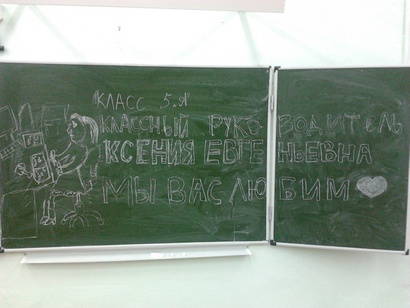 "КЛАСС 5.Я"
КЛАССНЫЙ РУКОВОДИТЕЛЬ
КСЕНИЯ ЕВГЕНЬЕВНА
МЫ ВАС ЛЮБИМ